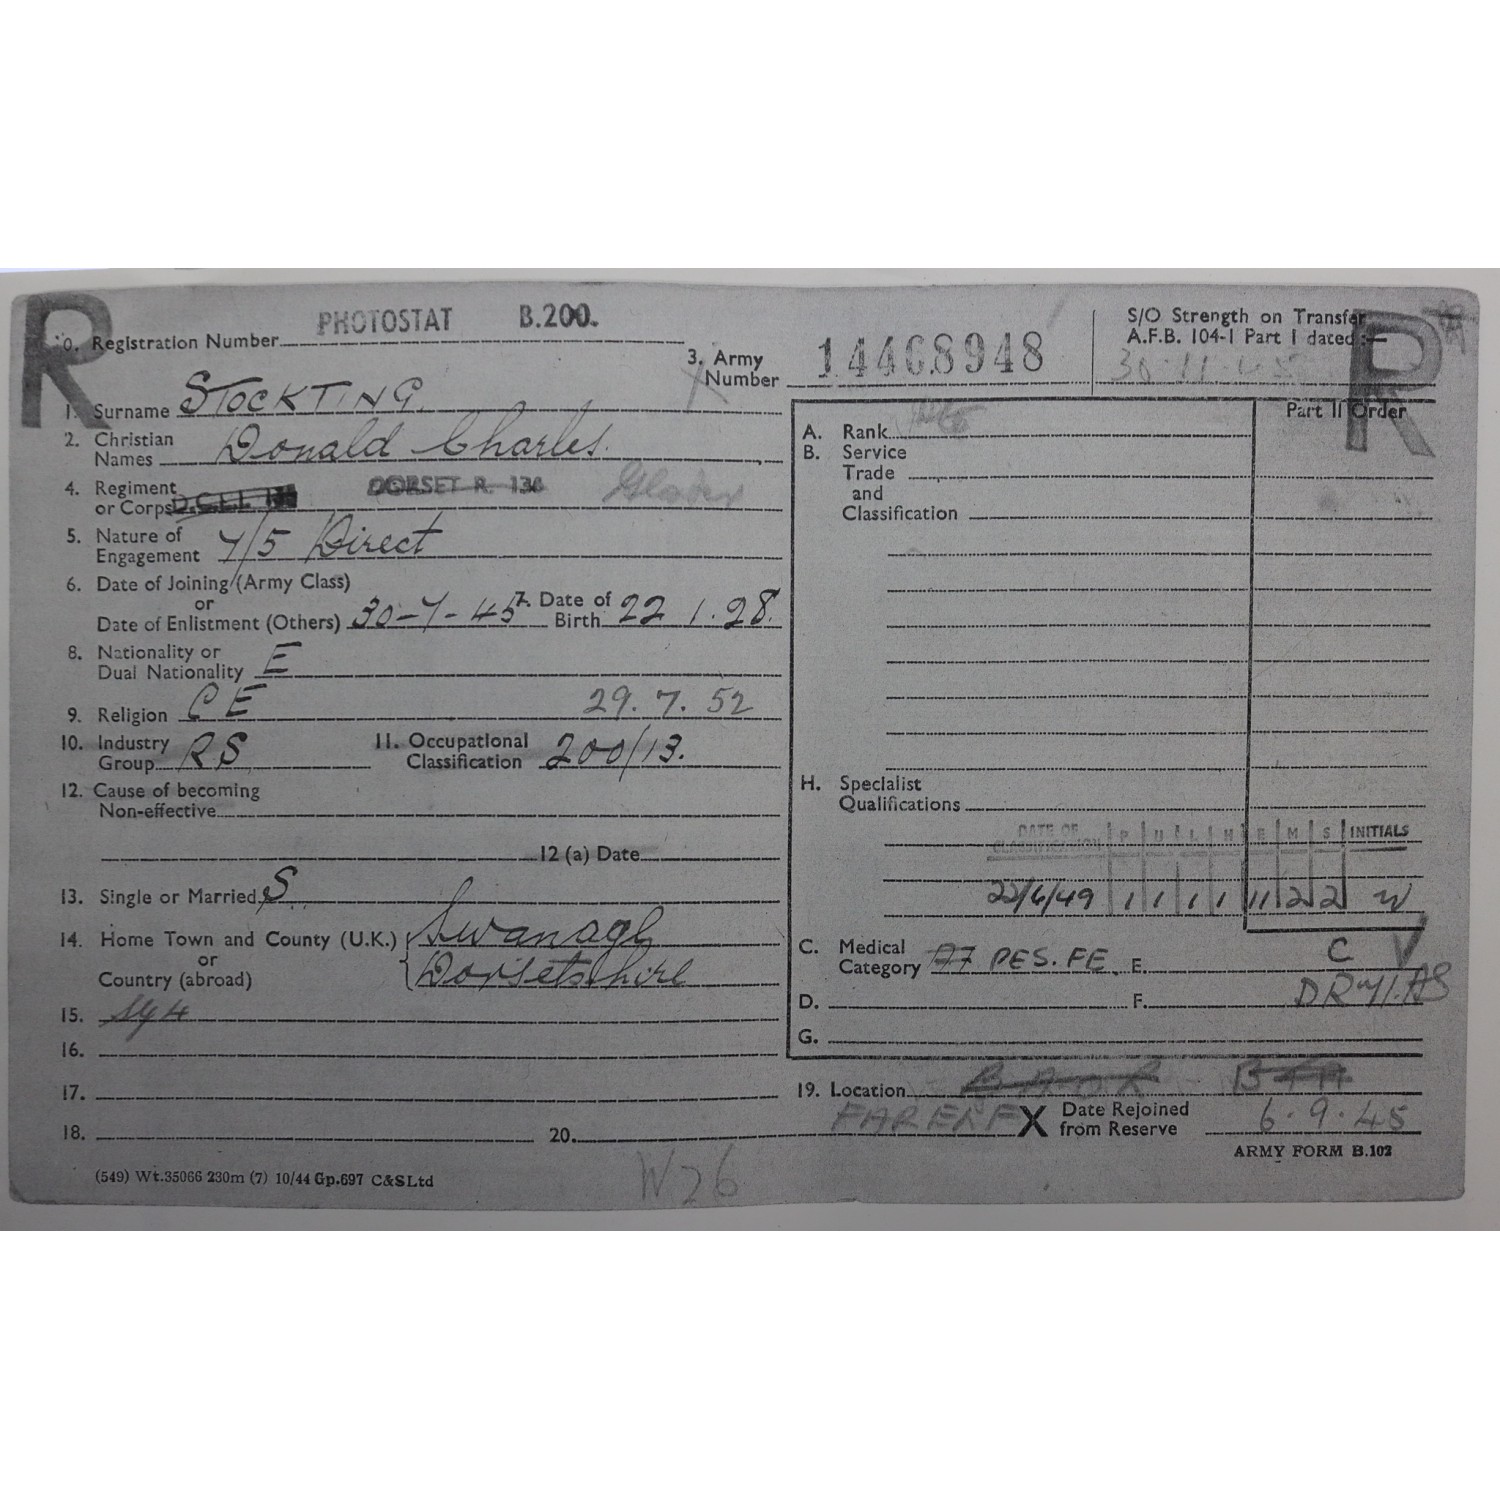 R
PHOTOSTAT B.200.
0. Registration Number
3. Army Number 14468948
S/O Strength on Transfer
A.F.B. 104-1 Part I dated:—
30.11.45
R
1. Surname STOCKTING.
2. Christian Names Donald Charles.
4. Regiment or Corps D.C.L.I. DORSET R. 130
5. Nature of Engagement 7/5 Direct
6. Date of Joining (Army Class)
or
Date of Enlistment (Others) 30-7-45
7. Date of Birth 22.1.28.
8. Nationality or Dual Nationality E
9. Religion C E 29.7.52
10. Industry Group RS
11. Occupational Classification 200/13.
12. Cause of becoming Non-effective
12 (a) Date
13. Single or Married S
14. Home Town and County (U.K.)
or
Country (abroad)
Swanage
Dorsetshire
15.
16.
17.
18.
20.
(549) Wt.35066 230m (7) 10/44 Gp.697 C&S Ltd
W26
Part II Order
A. Rank
B. Service
Trade
and
Classification
H. Specialist
Qualifications
DATE OF CLASSIFICATION P U L H E M S INITIALS
22/6/49 1 1 1 1 11 2 2
C. Medical Category A7 PES. FE. E. C V
D. F.
G.
19. Location B A O R
FARELF X Date Rejoined from Reserve 6.9.45
ARMY FORM B.102